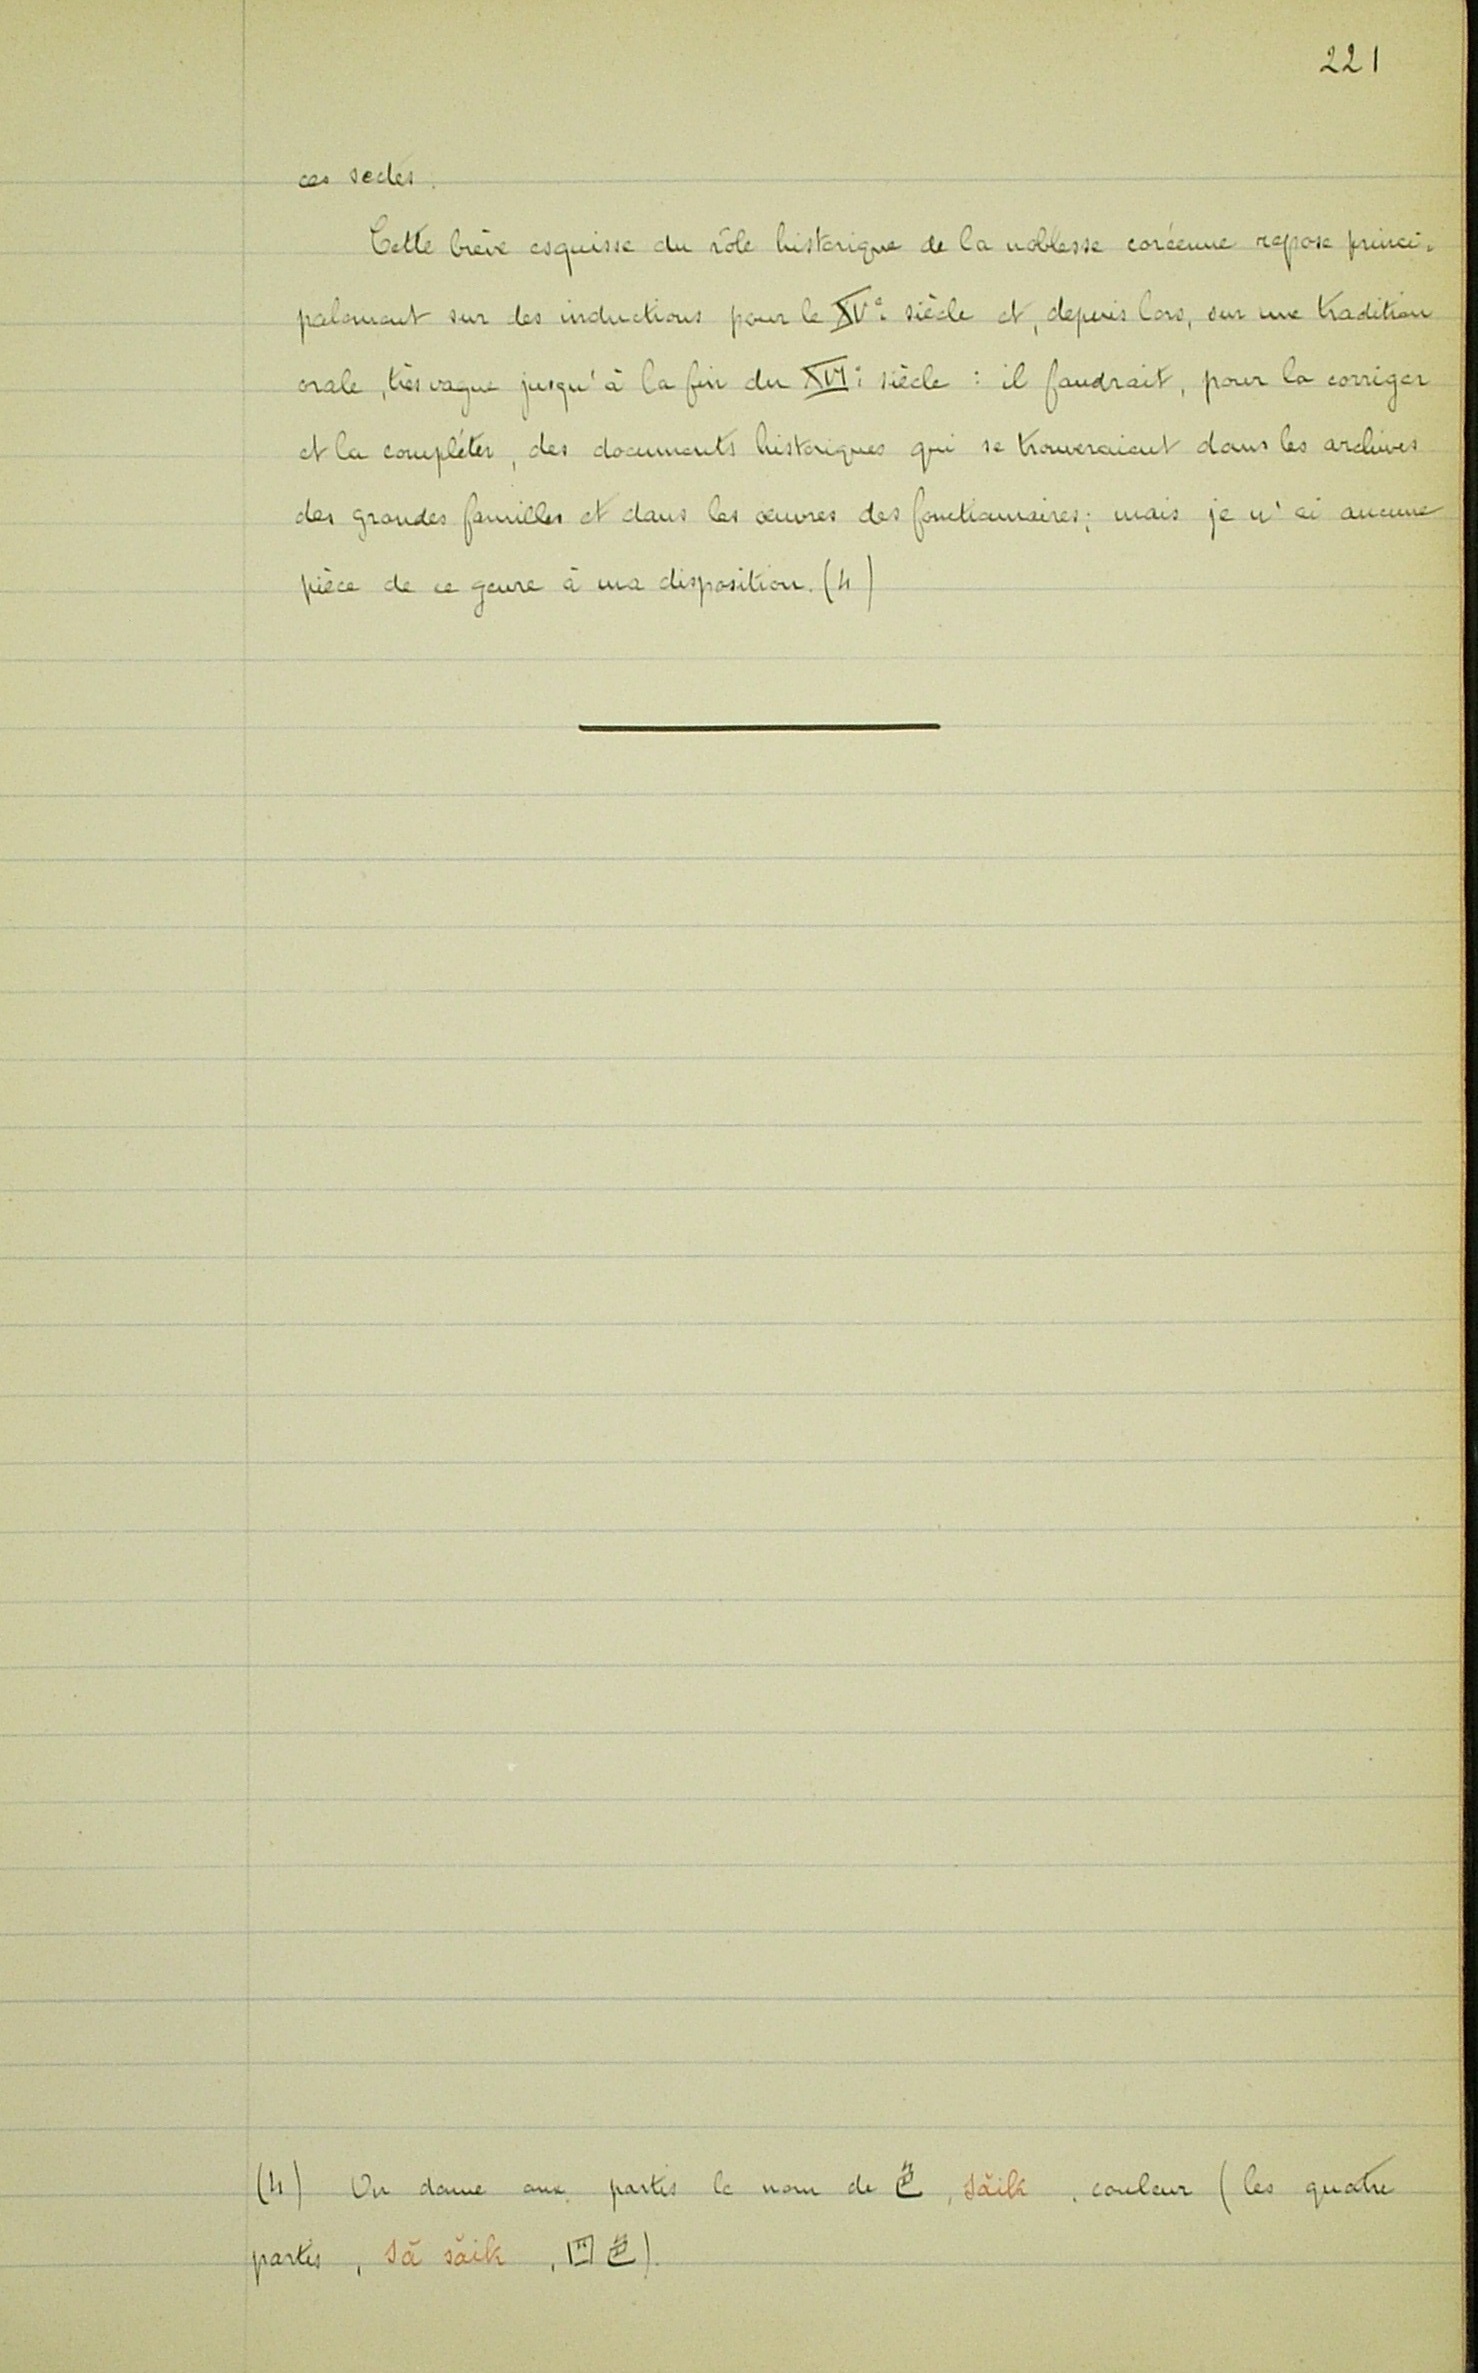 221
ces sectes.
Cette brève esquisse du rôle historique de la noblesse coréenne repose princi-
palement sur des inductions pour le XVe siècle et, depuis lors, sur une tradition
orale, très vague jusqu'à la fin du XVIe siècle : il faudrait, pour la corriger
et la compléter, des documents historiques qui se trouveraient dans les archives
des grandes familles et dans les œuvres des fonctionnaires; mais je n'ai aucune
pièce de ce genre à ma disposition. (4)
(4) On donne aux partis le nom de 色, săik, couleur (les quatre
partis, să săik, 四色).